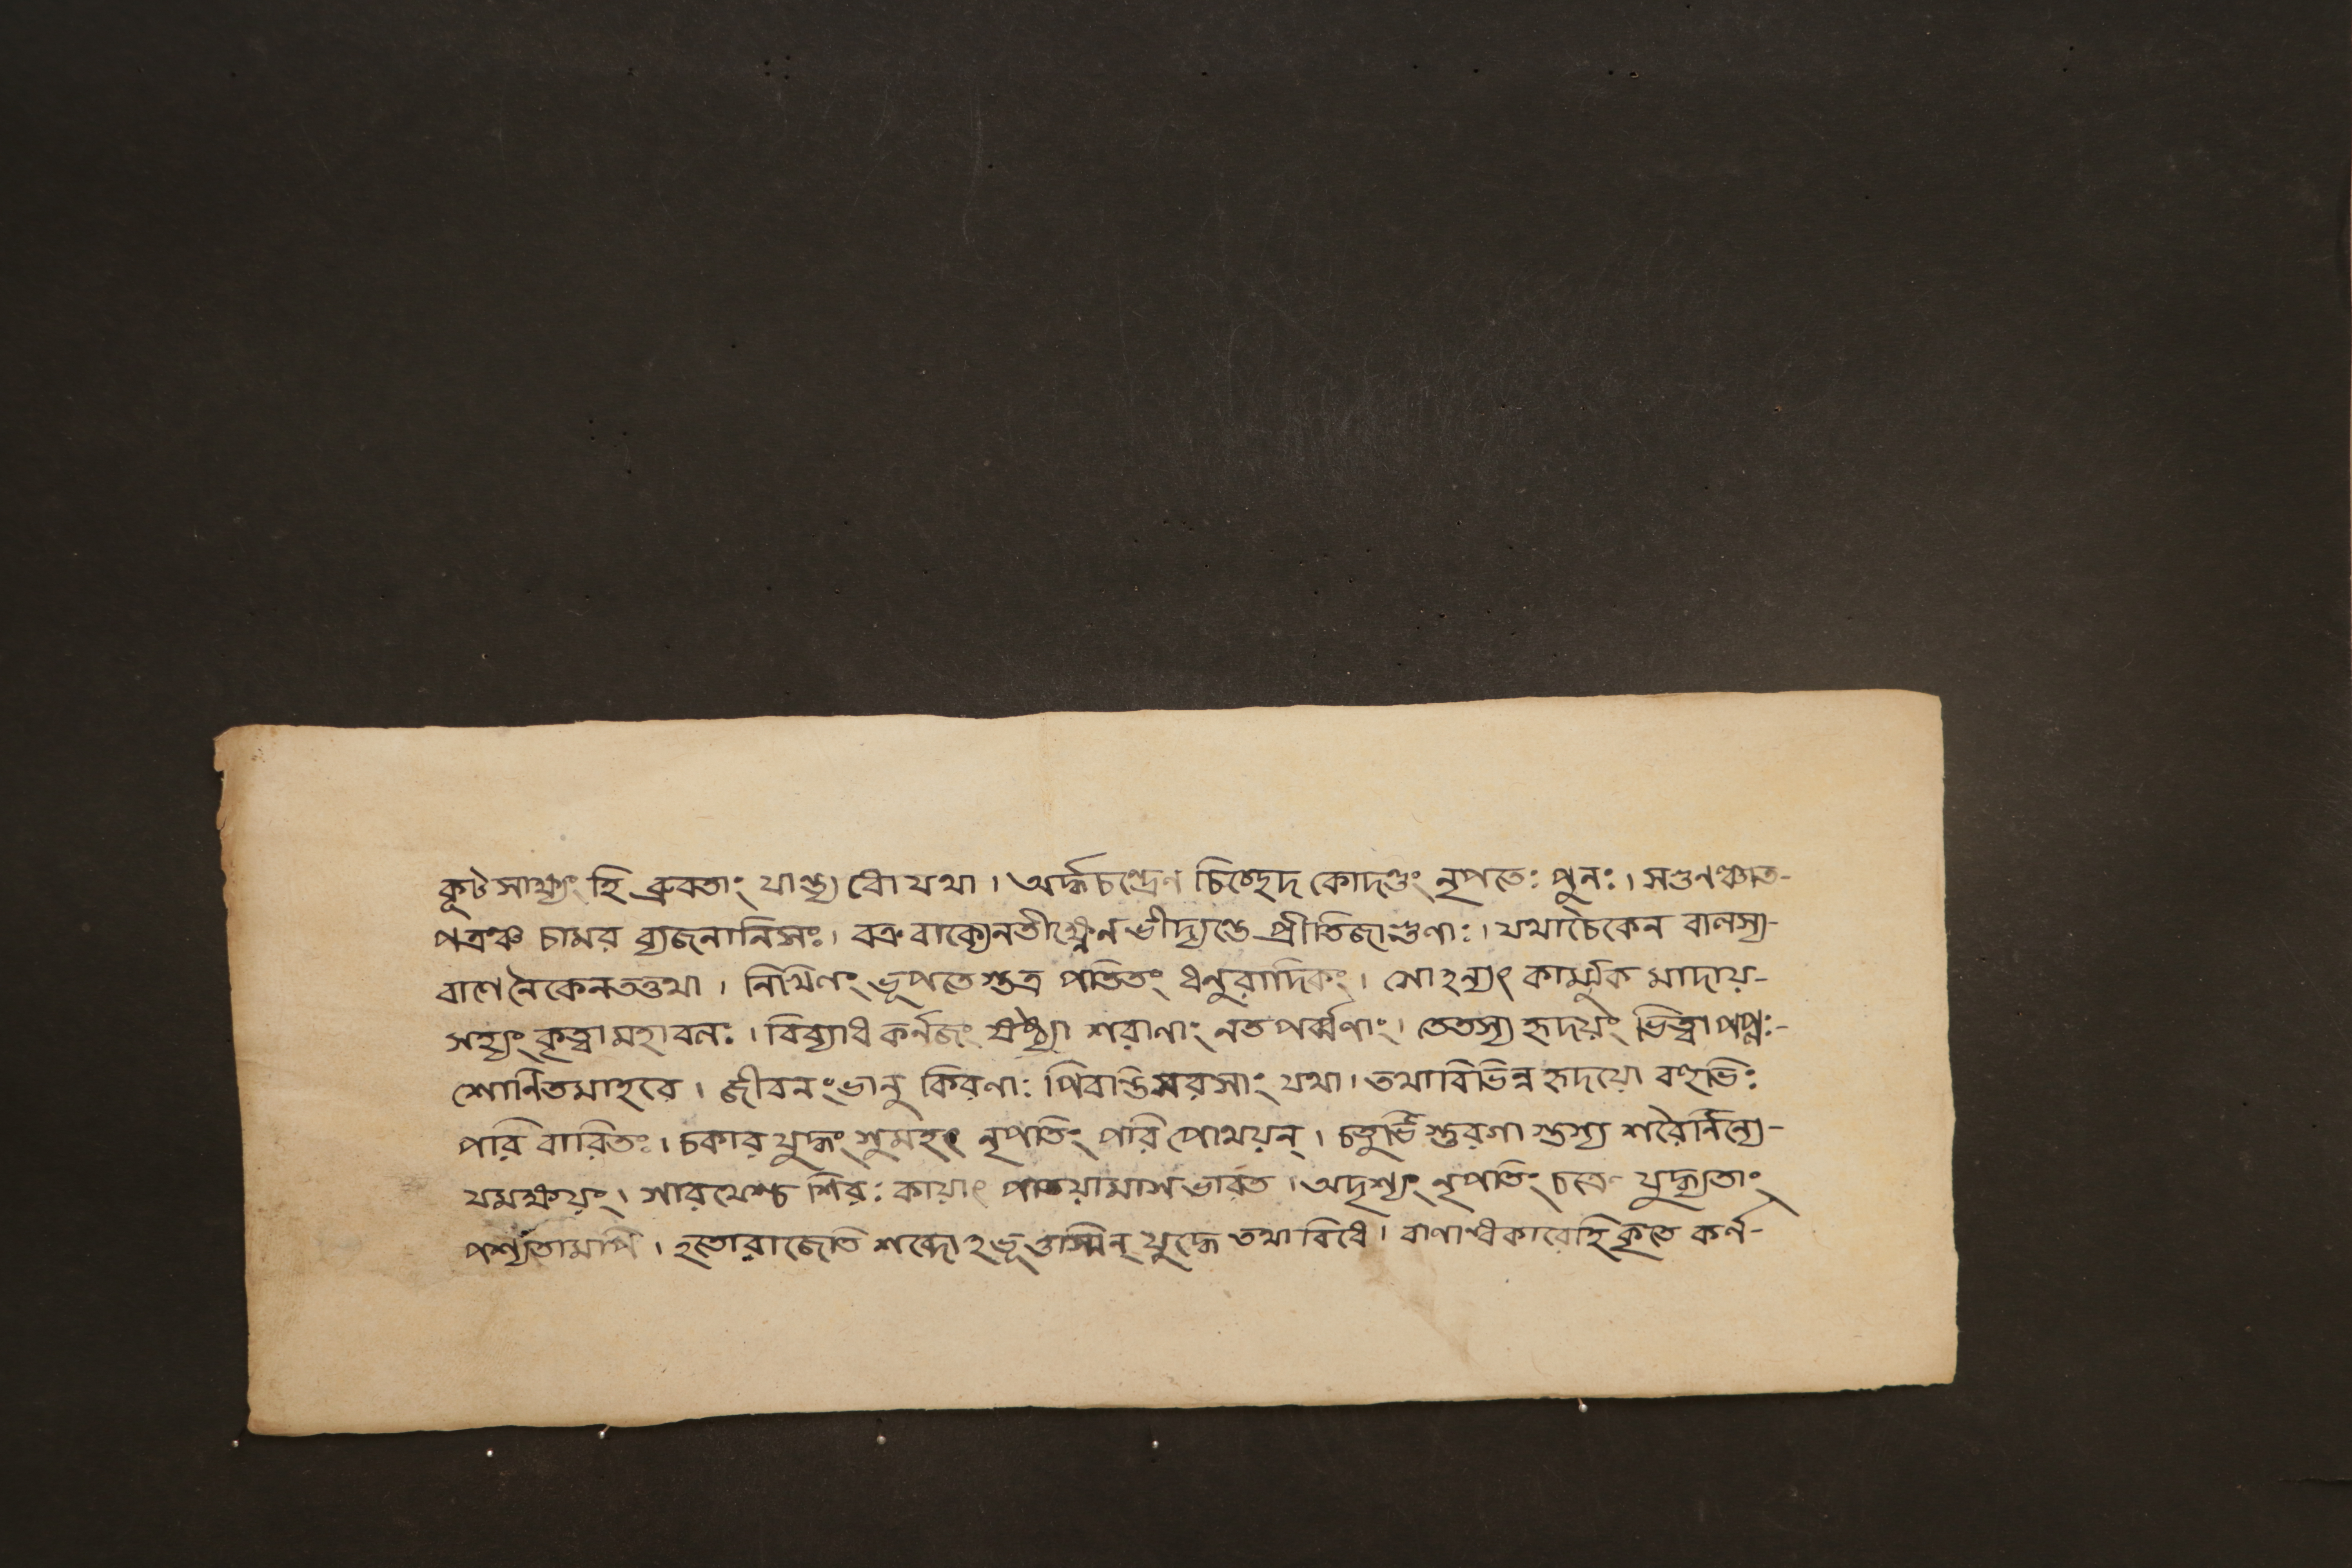 কূটসাক্ষ্যং হি ব্রুবতাং যান্ত্য ধো যথা । অর্দ্ধচন্দ্রেণ চিচ্ছেদ কোদণ্ডং নৃপতেঃ পুনঃ । সগুণঞ্চাত-
পত্রঞ্চ চামর ব্যজনানিসঃ । বক্র বাক্যেনতীক্ষ্ণেন ভীদ্যন্তে প্রীতিজাগুণাঃ । যথাচৈকেন বালস্য-
বাণে নৈকেনতত্তথা । নিখিলং ভূপতে স্তত্র পতিতং ধনুরাদিকং । সোঽন্যৎ কার্ম্মুক মাদায়-
সহ্যং কৃত্বা মহাবলঃ । বিব্যাধ কর্ণজং ষষ্ট্যা শরাণাং নতপর্ব্বণাং । তেতস্য হৃদয়ং ভিত্বা পপুঃ-
শোণিতমাহবে । জীবনংভানু কিরণাঃ পিবান্তিসরসাং যথা । তথাবিভিন্ন হৃদয়ো বহুভিঃ
পরি বারিতঃ । চকার যুদ্ধং সুমহৎ নৃপতিং পরি পোথয়ন্ । চতুর্ভি স্তুরগা স্তস্য শরৈর্নিন্যে-
যমক্ষয়ং । সারথেশ্চ শিরঃ কায়াৎ পাতয়ামাস ভারত । অদৃশ্যং নৃপতিং চক্রে যুদ্ধ্যতাং
পশ্যতামপি । হতোরাজেতি শব্দোঽভূত্তস্মিন্ যুদ্ধে তথা বিধে । বাণান্ধকারেহি কৃতে কর্ণ-